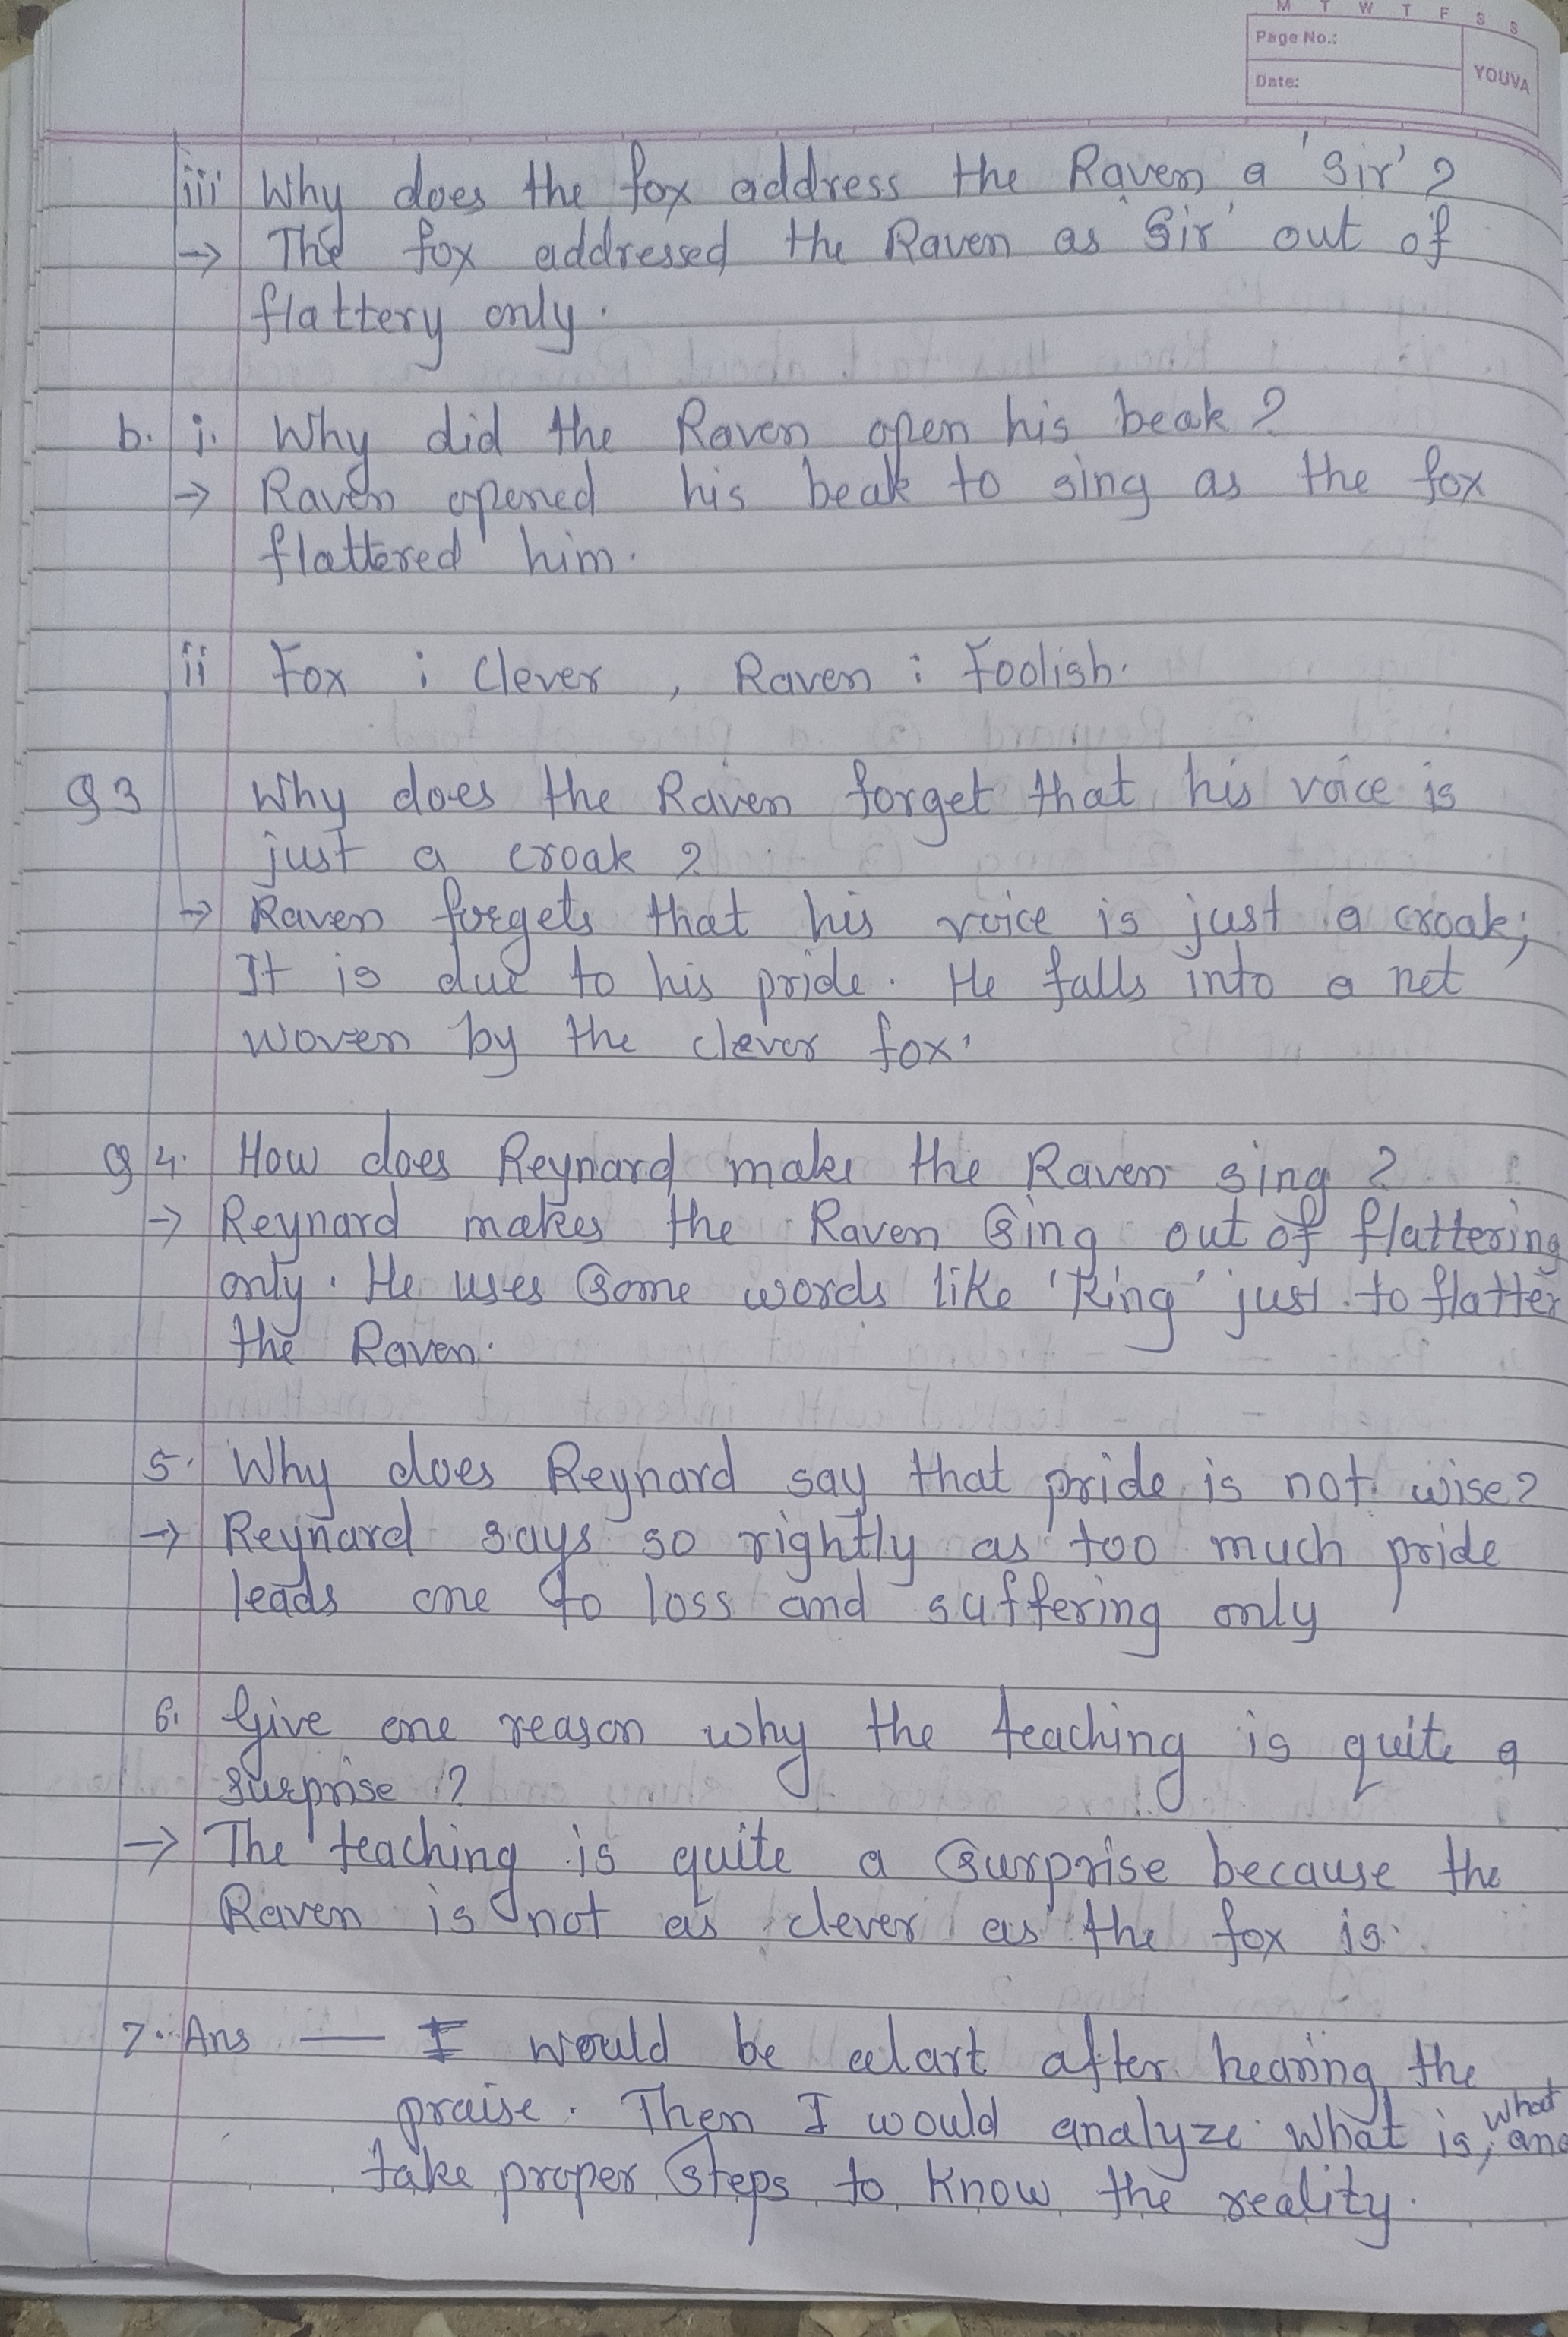 M T W T F S S
Page No.:
YOUVA
Date:
iii Why does the fox address the Raven a 'Sir' ?
→ The fox addressed the Raven as 'Sir' out of
flattery only.
b. i. Why did the Raven open his beak ?
→ Raven opened his beak to sing as the fox
flattered him.
ii Fox : Clever , Raven : Foolish.
Q 3 Why does the Raven forget that his voice is
just a croak ?
→ Raven forgets that his voice is just a croak;
It is due to his pride. He falls into a net
woven by the clever fox.
Q 4. How does Reynard make the Raven sing ?
→ Reynard makes the Raven sing out of flattering
only. He uses some words like 'King' just to flatter
the Raven.
5. Why does Reynard say that pride is not wise?
→ Reynard says so rightly as too much pride
leads one to loss and suffering only
6. Give one reason why the teaching is quite a
surprise ?
→ The teaching is quite a surprise because the
Raven is not as clever as the fox is.
7. Ans — I would be alart after hearing the
praise. Then I would analyze what is, what
take proper steps to know the reality.